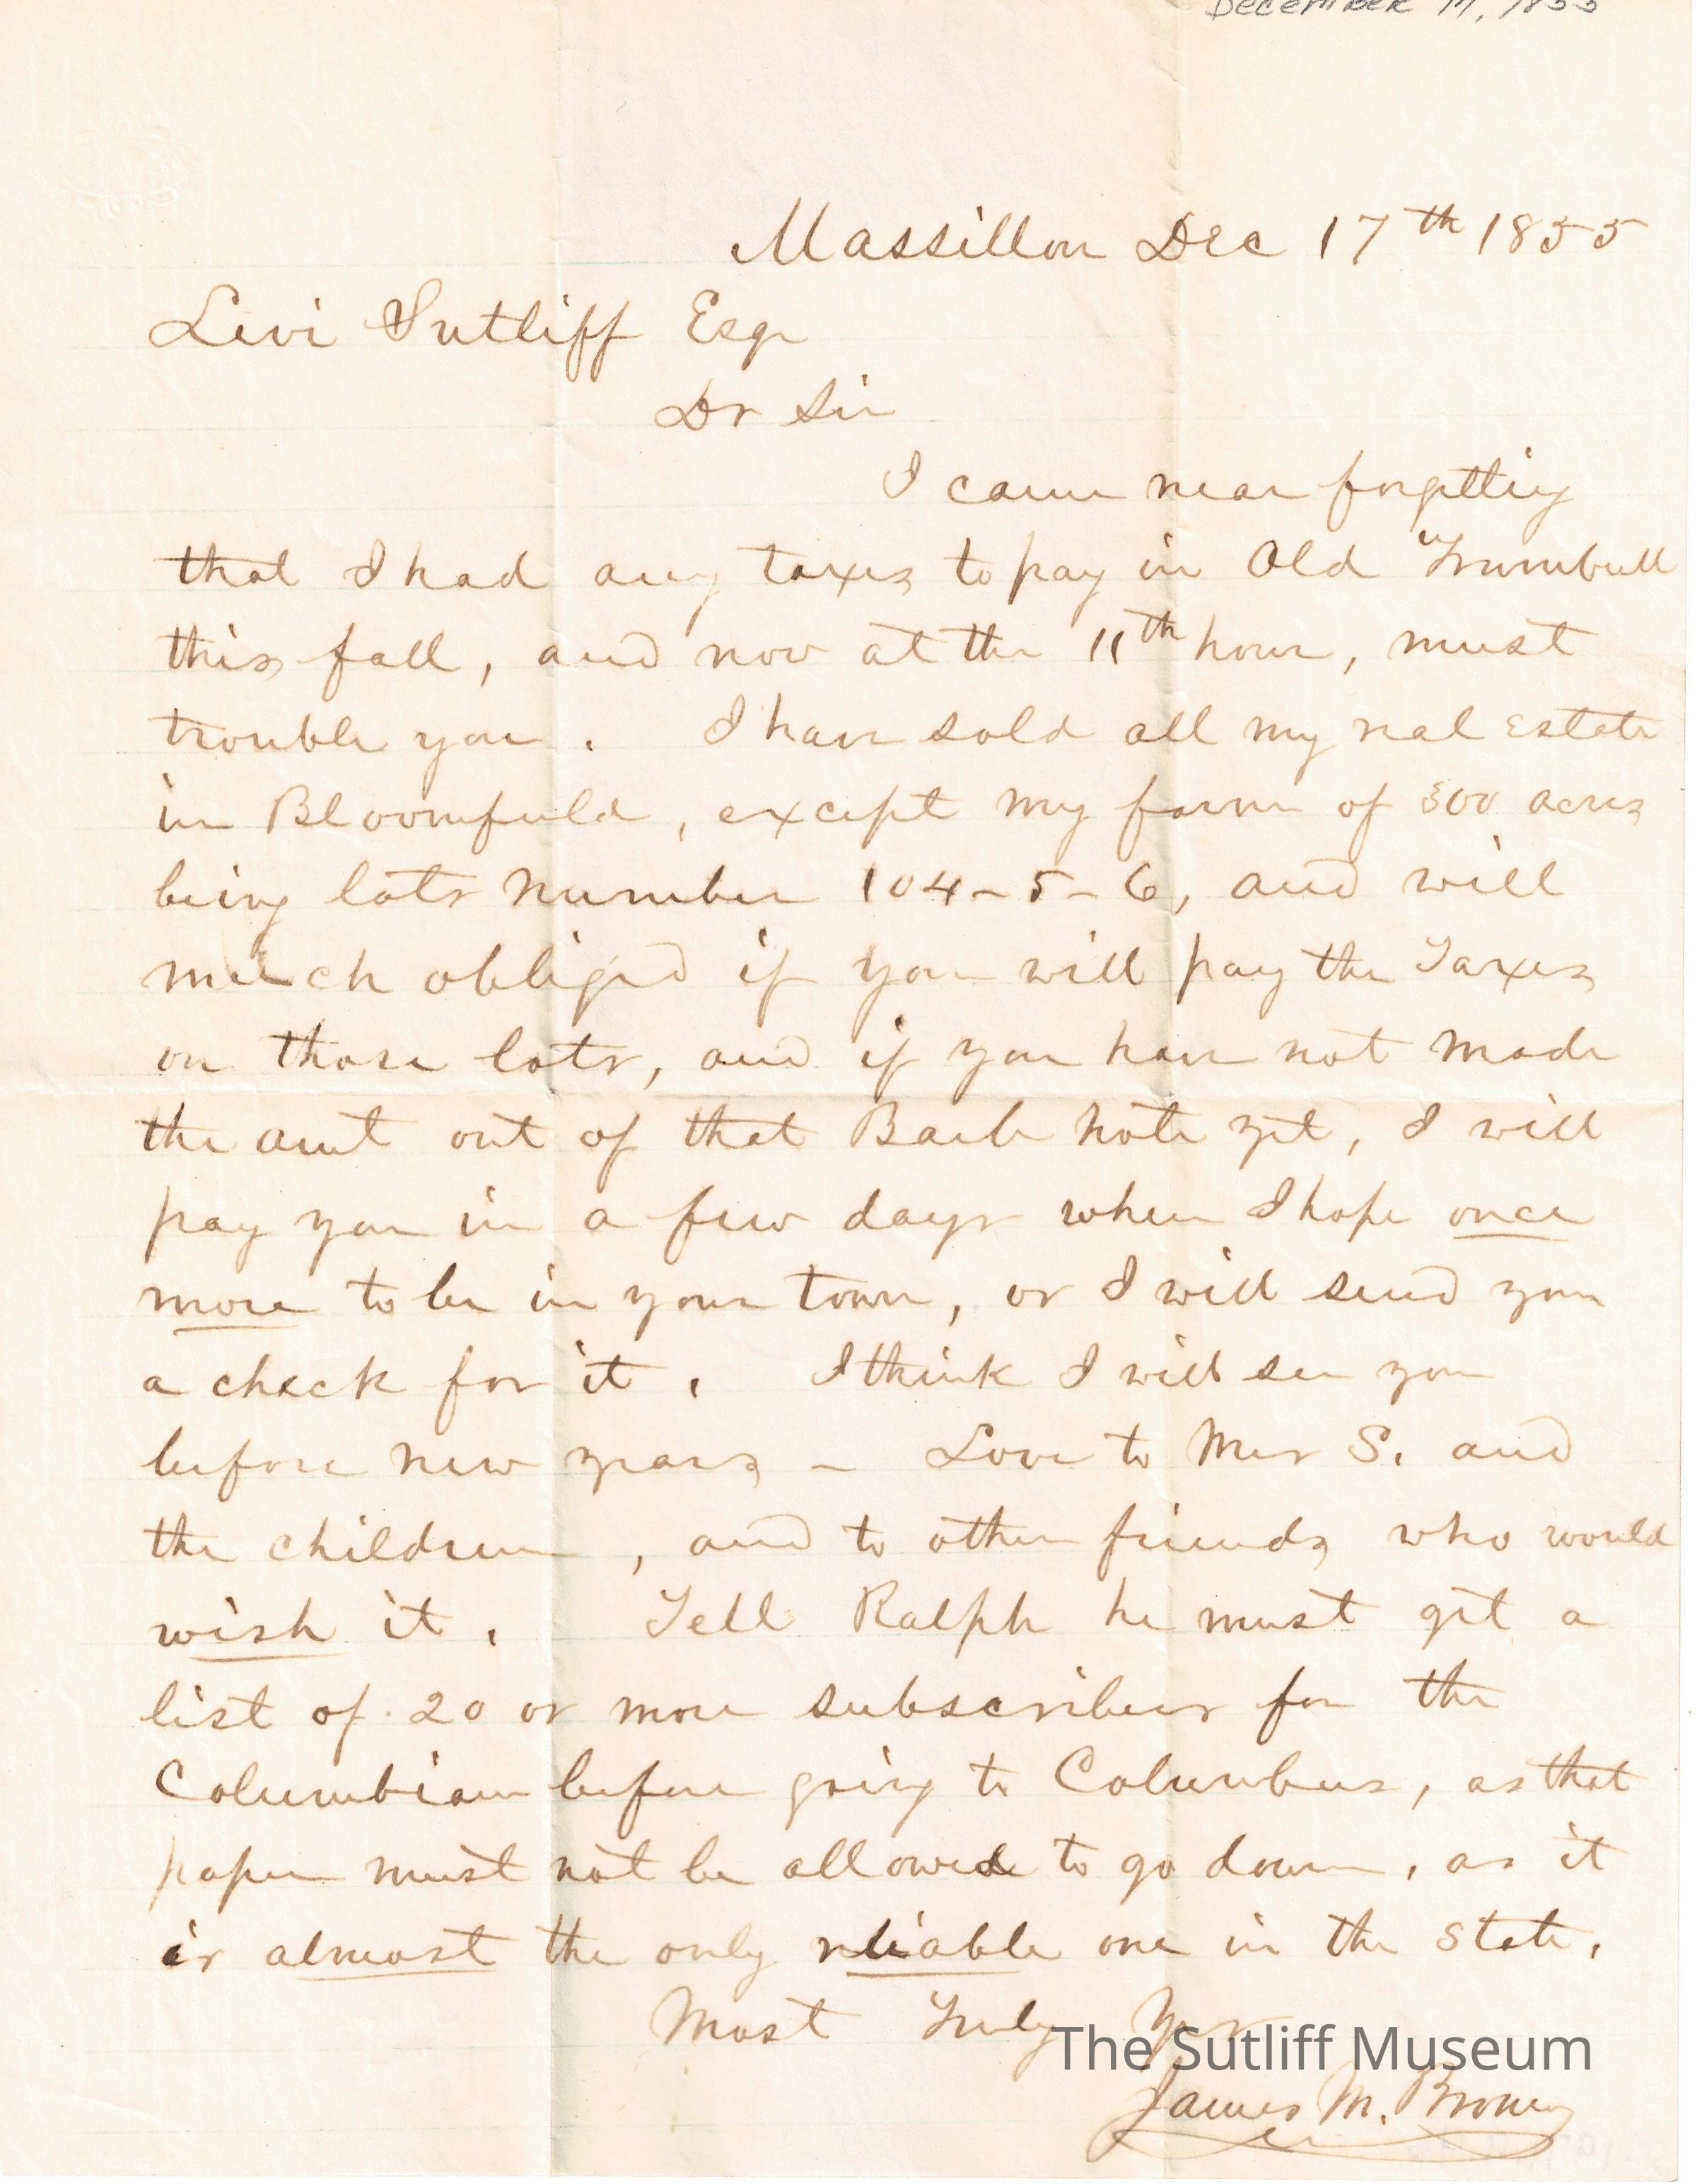 December 17, 1855
Massillon Dec 17th 1855
Levi Sutliff Esqr
Dr Sir
I came near forgetting
that I had any taxes to pay in Old Trumbull
this fall, and now at the 11th hour, must
trouble you. I have sold all my real Estate
in Bloomfield, except my farm of 300 acres
being lots number 104-5-6, and will
much obliged if you will pay the Taxes
on those lots, and if you have not made
the amt out of that note yet, I will
pay you in a few days when I hope once
more to be in your town, or I will send you
a check for it. I think I will see you
before new years – Love to Mrs S. and
the children, and to other friends who would
wish it. Tell Ralph he must get a
list of 20 or more subscribers for the
Columbian before going to Columbus, as that
paper must not be allowed to go down, as it
is almost the only reliable one in the State.
Most Truly Yrs
The Sutliff Museum
James M. Brown